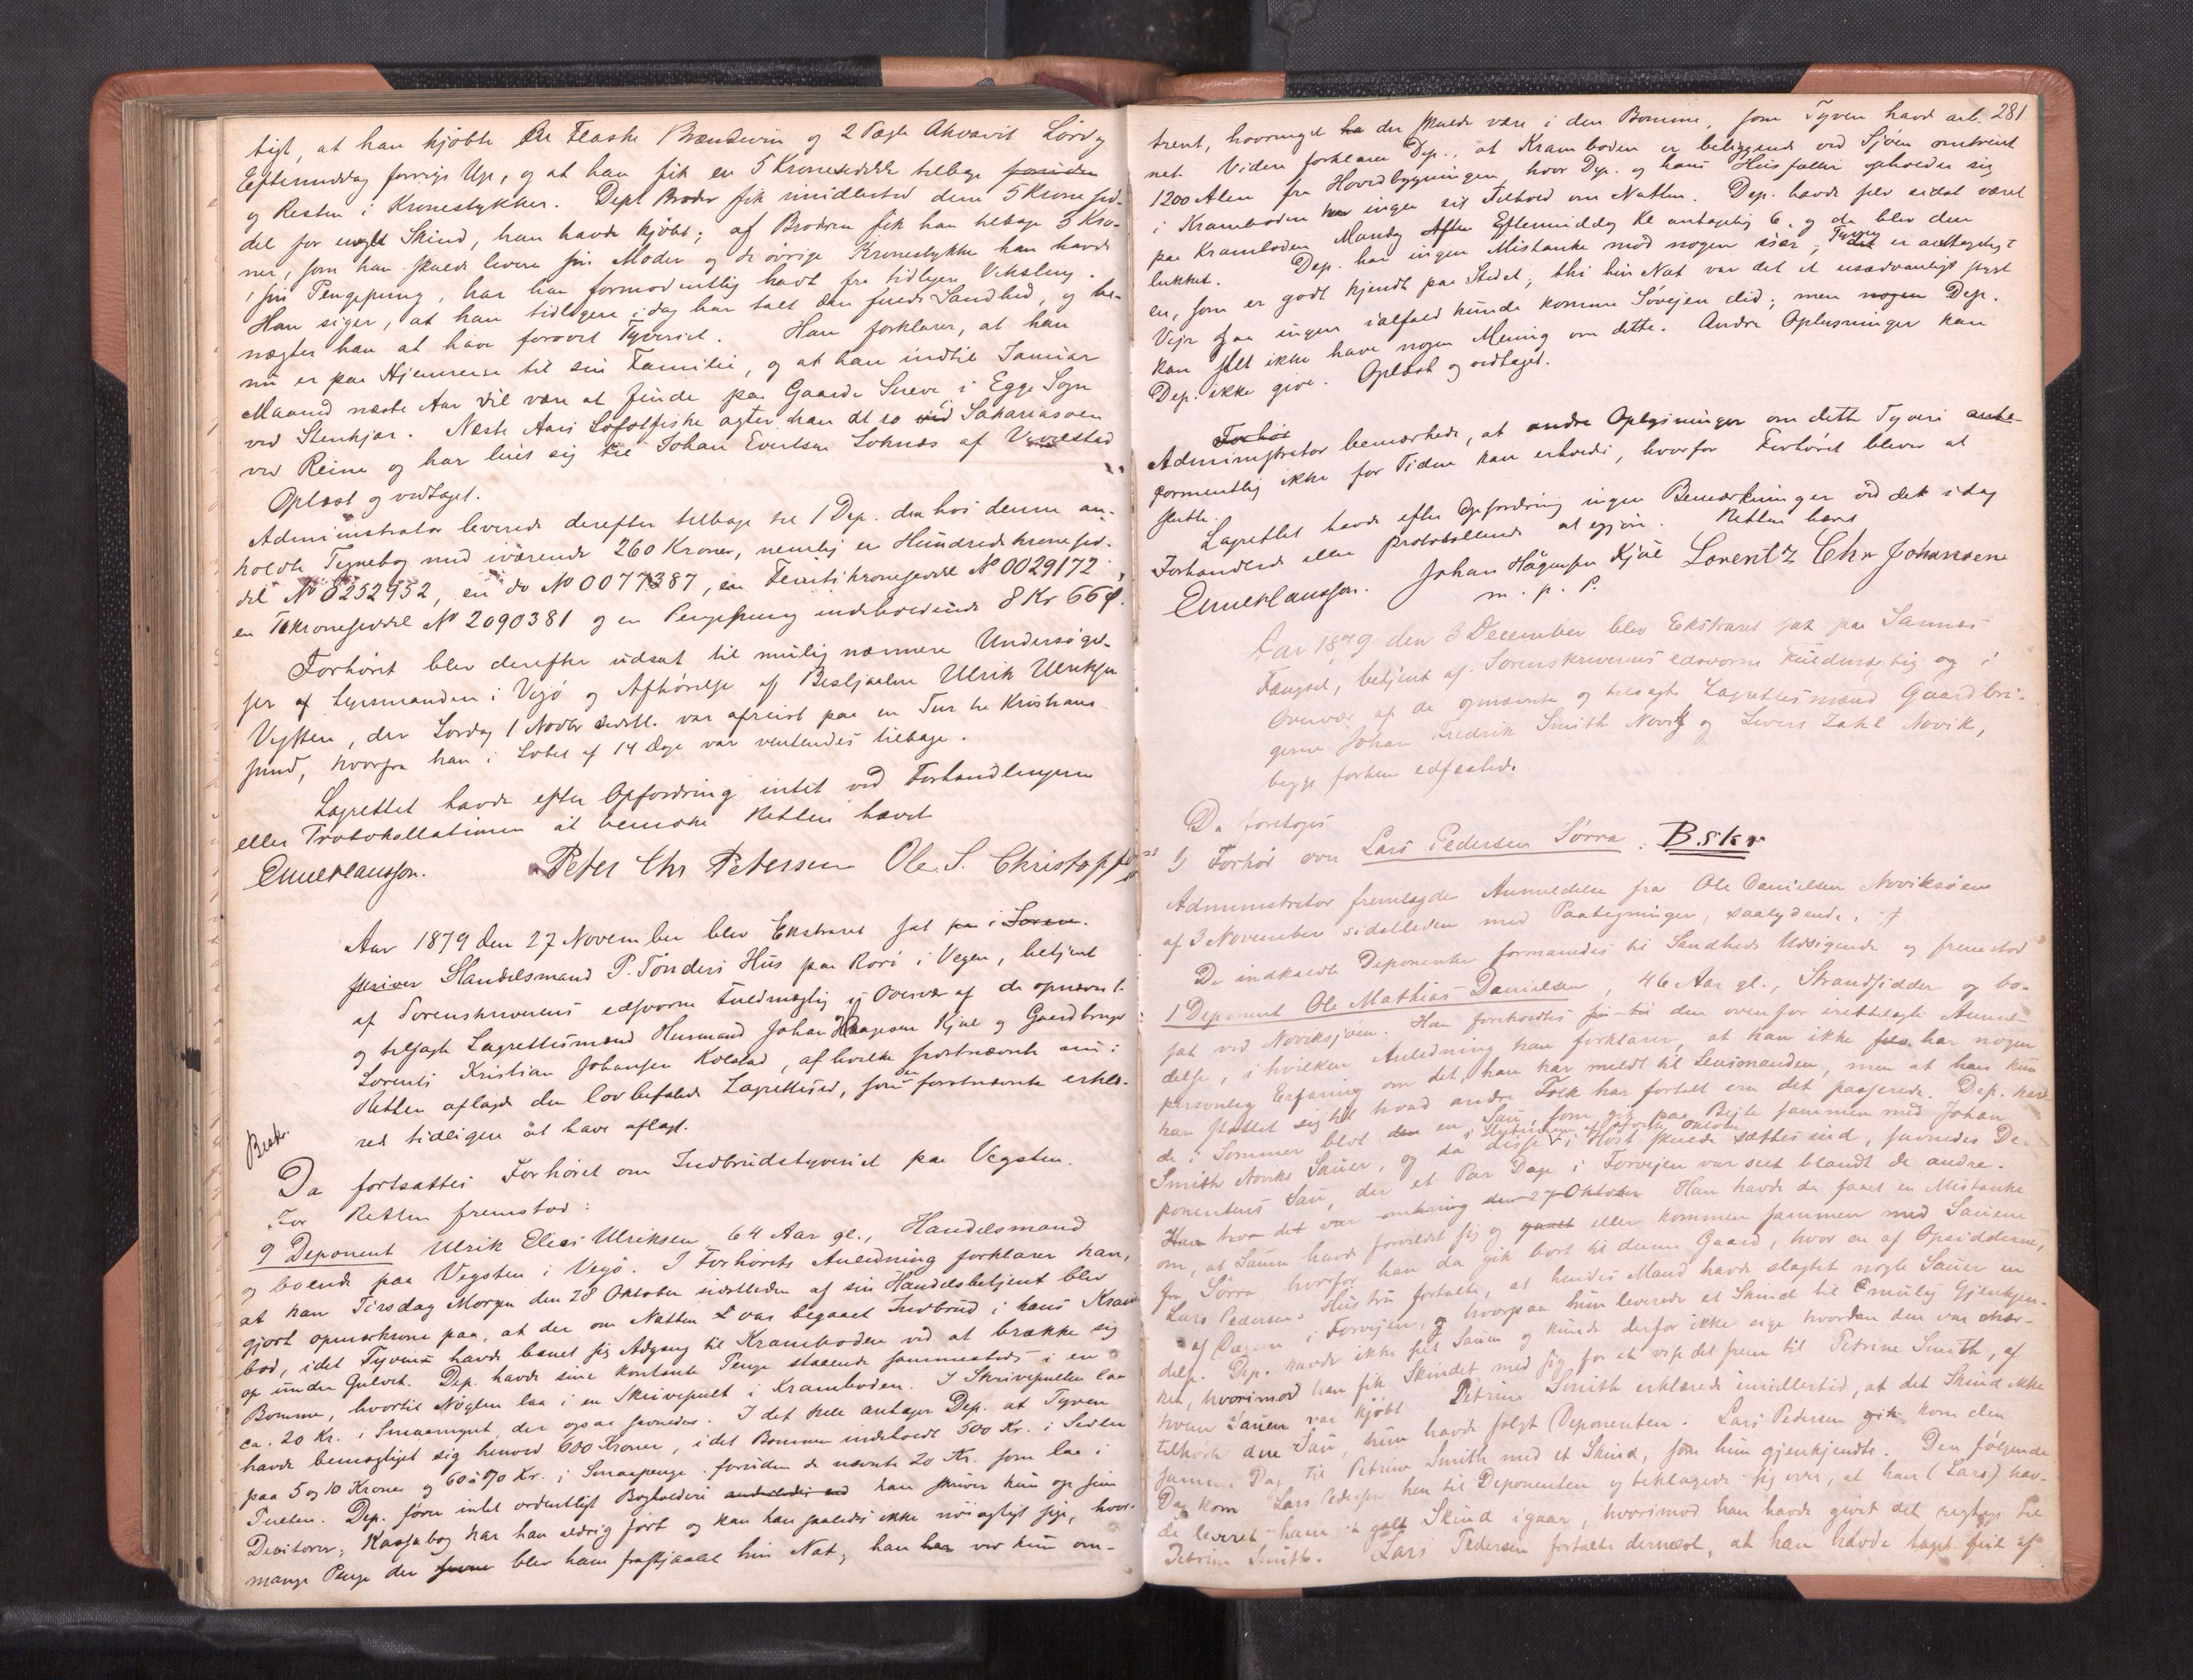 tigt, at han kjøbte En Flaske Brændevin og 2 Pægle Akvavit Lørdag
Eftermiddag forrige Uge, og at han fik en 5 Kroneseddel tilbage foruden
og Resten i Kronestykker. Depts Broder fik imidlertid denne 5 Krone sed-
del for noget Skind, han havde kjøbt; af Broderen fik han tilbage 3 Kro-
ner, som han skulde levere sin Moder og de øvrige Kronestykker han havde
i sin Pengepung, har han formodentlig havt fra tidligere Veksling.
Han siger, at han tidligere i dag har talt den fulde Sandhed, og be-
nægter han at have forøvet Tyveriet. Han forklarer, at han
nu er paa Hjemreise til sin Familie, og at han indtil Januar
Maaned næste Aar vil være at finde paa Gaarden i Egge Sogn
ved Stenkjær. Næste Aars Lofotfiske agter han at ro ved Sakariasøen
ved Reine og har leiet sig til Johan Evertsen Loknæs af
Oplæst og vedtaget.
Administrator leverede derefter tilbage til 1 Dep. den hos denne an-
holdte Tegnebog med iværende 260 Kroner, nemlig en Hundredekronesed-
del No 0252952, en do No 0077387, en Femtikroneseddel No 0029172,
en Tikroneseddel No 2090381 og en Pengepung indeholdende 8 Kr 66 Ø.
Forhøret blev derefter udsat til mulig nærmere Undersøgel-
ser af Lensmanden i Vegø og Afhørelse af Bestjaalne Ulrik Ulriksen
Vegsten, der Lørdag 1 Novbr sidstl. var afreist paa en Tur til Kristians-
sund, hvorfra han i Løbet af 14 Dage var ventendes tilbage.
Lagrettet havde efter Opfordring intet ved Forhandlingerne
eller Protokollationen at bemærke Retten hævet
Peter Chr Petersen Ole. S. Christoffersen
Aar 1879 den 27 November blev Ekstraret sat paa i Soren-
skriver Handelsmand P. Tønders Hus paa Rørø i Vegen, betjent
af Sorenskriverens edsvorne Fuldmægtig i Overvær af de opnævnte
og tilsagte Lagrettesmænd Husmand Johan Haagensen Kjul og Gaardbruger
Lorents Kristian Johansen Kolstad, af hvilke sidstnævnte nu i
Retten aflagde den lovbefalede Lagretteseed, som den førstnævnte erklæ-
rede tidligere at have aflagt.
Beskr.
Da fortsattes Forhøret om Indbrudstyveriet paa Vegsten.
For Retten fremstod:
9 Deponent Ulrik Elias Ulriksen 64 Aar gl., Handelsmand
og boende paa Vegsten i Vegø. I Forhørets Anledning forklarer han,
at han Tirsdag Morgen den 28 Oktober sidstleden af sin Handelsbetjent blev
gjort opmærksom paa, at der om Natten var begaaet Indbrud i hans Kram-
bod, idet Tyven havde banet sig Adgang til Kramboden ved at brække sig
op under Gulvet. Dep. havde sine kontante Penge staaende sammesteds i en
Bomme, hvortil Nøglen laa i en Skrivepult i Kramboden. I Skrivepulten laa
ca. 20 Kr. i Smaamynt, der ogsaa savnedes. I det hele antager Dep. at Tyven
havde bemægtiget sig henved 600 Kroner, idet Bommen indeholdt 500 Kr. i Sedler
paa 5 og 10 Kroner og 60 à 70 Kr. i Smaapenge foruden de nævnte 20 Kr. som laa i
Pulten. Dep. fører intet ordentligt Bogholderi han skriver kun op sine
Devitorer; Kassabog har han aldrig ført og kan han saaledes ikke nøiagtigt sige, hvor-
mange Penge der blev ham frastjaalet hin Nat; han har ved kun om-
281
trent, hvormeget der skulde være i den Bomme, som Tyven havde aab-
net. Videre forklarer Dep., at Kramboden er beliggende ved Sjøen omtrent
1200 Alen fra Hovedbygningen, hvor Dep. og hans Husfolk opholder sig
i Kramboden har ingen sit Tilhold om Natten. Dep. havde selv sidst været
paa Kramboden Mandag Eftermiddag Kl antagelig 6, og da blev den
lukket. Dep. har ingen Mistanke mod nogen især; Tyven er antageligt
en, som er godt kjendt paa Stedet; thi hin Nat var det et usædvanligt stygt
Vejr saa ingen ialfald kunde komme Søvejen did; men nogen Dep.
kan selv ikke have nogen Mening om dette. Andre Oplysninger kan
Dep. ikke give. Oplæst og vedtaget.
Forhør
Administrator bemærkede, at andre Oplysninger om dette Tyveri
formentlig ikke for Tiden kan erholdes, hvorfor Forhøret bliver at
slutte.
Lagrettet havde efter Opfordring ingen Bemærkninger ved det idag
Forhandlede eller Protokollerede at gjøre. Retten hævet
Johan Hågensen Kjul Lorentz Chr Johansen
m. p. P.
Aar 1879 den 3 December blev Ekstraret sat paa Sannæs
Fængsel, betjent af Sorenskriverens edsvorne Fuldmægtig og i
Overvær af de opnævnte og tilsagte Lagrettesmænd Gaardbru-
gerne Johan Fredrik Smith Novik og Sivert Zahl Novik,
begge forhen edfæstede.
Da foretoges
1) Forhør over Lars Pedersen Sørra. Bskr
Administrator fremlagde Anmeldelse fra Ole Danielsen Noviksøen
af 3 November sidstleden med Paategninger, saalydende:
De indkaldte Deponenter formanedes til Sandheds Udsigende og fremstod
1 Deponent Ole Mathias Danielsen, 46 Aar gl., Strandsidder og bo-
sat ved Noviksjøen. Han foreholdtes den ovenfor irettelagte Anmel-
delse, i hvilken Anledning han forklarer, at han ikke har nogen
personlig Erfaring om det, han har meldt til Lensmanden, men at han kun
har støttet sig til hvad andre Folk har fortalt om det passerede. Dep. hav-
de i Sommer blot en Sau, som gik paa Bejte sammen med Johan
Smith Noviks Sauer, og da disse i Høst skulde sættes ind, savnedes De-
ponentens Sau, der et Par Dage i Forvejen var seet blandt de andre.
det var omkring den 27 Oktober Han havde da faaet en Mistanke
om, at Sauen havde forvildet sig og eller kommen sammen med Sauene
fra Sørra, hvorfor han da gik bort til denne Gaard, hvor en af Opsidderne,
Lars Pedersens Hustru fortalte, at hendes Mand havde slagtet nogle Sauer en
af Dagene i Forvejen, og hvorpaa hun leverede et Skind til mulig Gjenkjen-
delse. Dep. havde ikke selv Sauen og kunde derfor ikke sige hvordan den var mær-
ket, hvorimod han fik Skindet med sig for at vise det frem til Petrine Smith, af
hvem Sauen var kjøbt. Petrine Smith erklærede imidlertid, at det Skind ikke
tilhørte den Sau, hun havde solgt Deponenten. Lars Pedersen gik kom den
samme Dag til Petrine Smith med et Skind, som hun gjenkjendte. Den følgende
Dag kom Lars Pedersen hen til Deponenten og beklagede sig over, at han (Lars) hav-
de leveret ham et galt Skind igaar, hvorimod han havde givet det rigtige til
Petrine Smith. Lars Pedersen fortalte dernæst, at han havde taget feil af